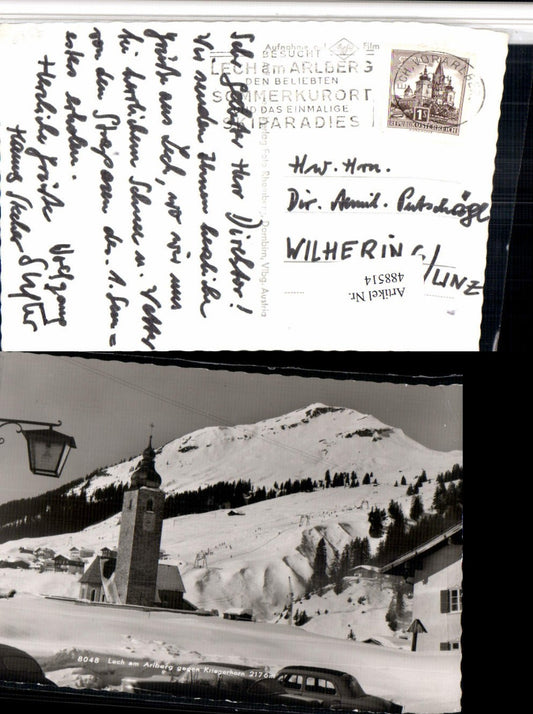 Sehr Geehrter Herr Direktor!
Wir senden Ihnen herzliche
Grüße aus Lech, wo wir uns
bei herrlichem Schnee u. Wetter
von den Strapazen des 1. Sem=
esters erholen.
Herzliche Grüße Wolfgang
Hannes
Aufnahme auf Agfa Film
BESUCHT
LECH am ARLBERG
DEN BELIEBTEN
SOMMERKURORT
UND DAS EINMALIGE
SKIPARADIES
LECH, VORARLBERG
1S
REPUBLIK ÖSTERREICH
Dornbirn, Vlbg. Austria
Hw. Hrn.
Dir. Aemil. Putschögl
WILHERING/LINZ
Artikel Nr.
488514
8048 Lech am Arlberg gegen Kriegerhorn 2176 m